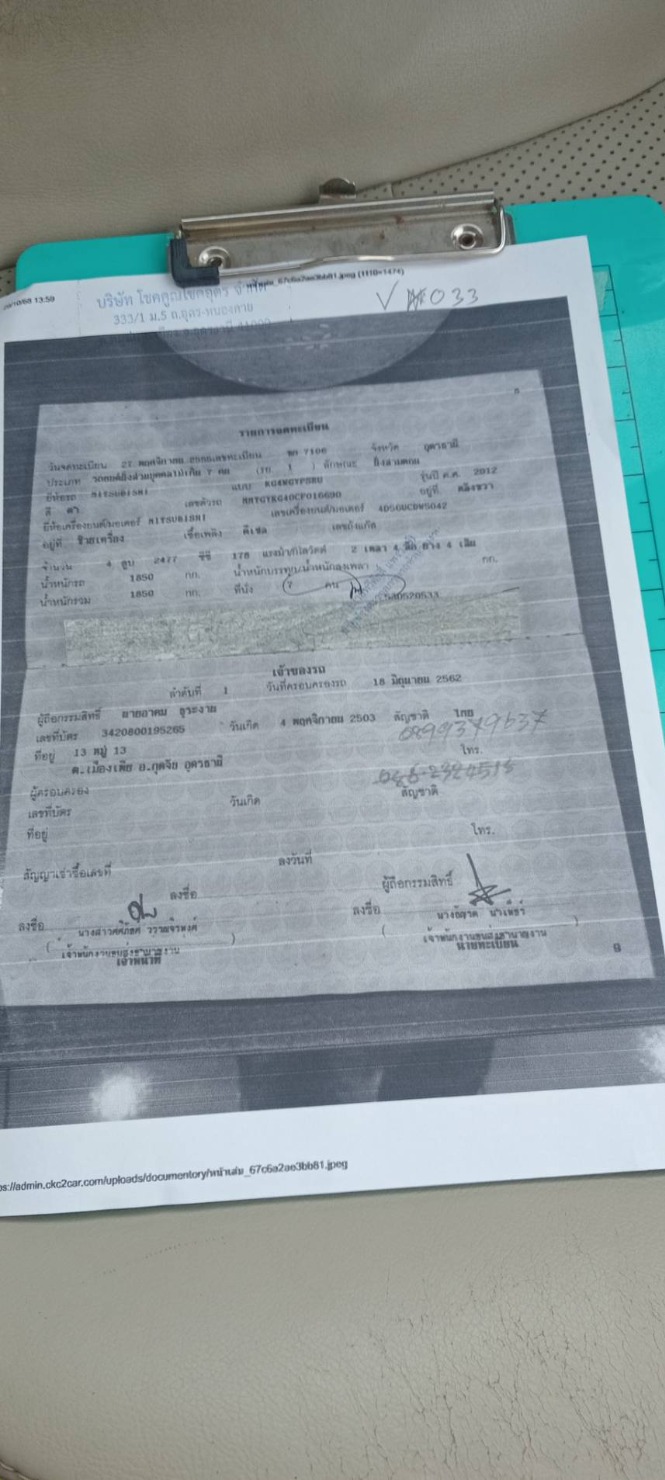 /10/68 13:59
หน้าเล่ม_67c6a2ae3bb81.jpeg (1110×1474)
บริษัท โชคคูณโชคอุดร จำกัด
333/1 ม.5 ถ.อุดร-หนองคาย
033
รายการจดทะเบียน
วันจดทะเบียน 27 พฤศจิกายน 2555 เลขทะเบียน 7106 จังหวัด อุดรธานี
ประเภท รถยนต์นั่งส่วนบุคคลไม่เกิน 7 คน (รย. 1 ) ลักษณะ นั่งสามตอน
ยี่ห้อรถ MITSUBISHI แบบ KG4WGYPSRU รุ่นปี ค.ศ. 2012
สี ดำ เลขตัวรถ อยู่ที่
ยี่ห้อเครื่องยนต์/มอเตอร์ MITSUBISHI เลขเครื่องยนต์/มอเตอร์ 4D56UCDW5042
อยู่ที่ ซ้ายเครื่อง เชื้อเพลิง ดีเซล เลขถังแก๊ส
จำนวน 4 สูบ 2477 ซีซี 178 แรงม้า/กิโลวัตต์ 2 เพลา 4 ล้อ ยาง 4 เส้น
น้ำหนักรถ 1850 กก. น้ำหนักบรรทุก/น้ำหนักลงเพลา กก.
น้ำหนักรวม 1850 กก. ที่นั่ง (7 คน
เจ้าของรถ
ลำดับที่ 1 วันที่ครอบครองรถ 18 มิถุนายน 2562
ผู้ถือกรรมสิทธิ์
เลขที่บัตร 3420800195265 วันเกิด 4 พฤศจิกายน 2503 สัญชาติ ไทย
0899379637
ที่อยู่ 13 หมู่ 13 โทร.
ต.เมืองเพีย อ.กุดจับ อุดรธานี
ผู้ครอบครอง
เลขที่บัตร วันเกิด สัญชาติ
ที่อยู่ โทร.
สัญญาเช่าซื้อเลขที่ ลงวันที่
ลงชื่อ ผู้ถือกรรมสิทธิ์
ลงชื่อ ลงชื่อ
( เจ้าพนักงานขนส่งชำนาญงาน ) ( เจ้าพนักงานขนส่งชำนาญงาน )
เจ้าหน้าที่ นายทะเบียน
9
ps://admin.ckc2car.com/uploads/documentory/หน้าเล่ม_67c6a2ae3bb81.jpeg